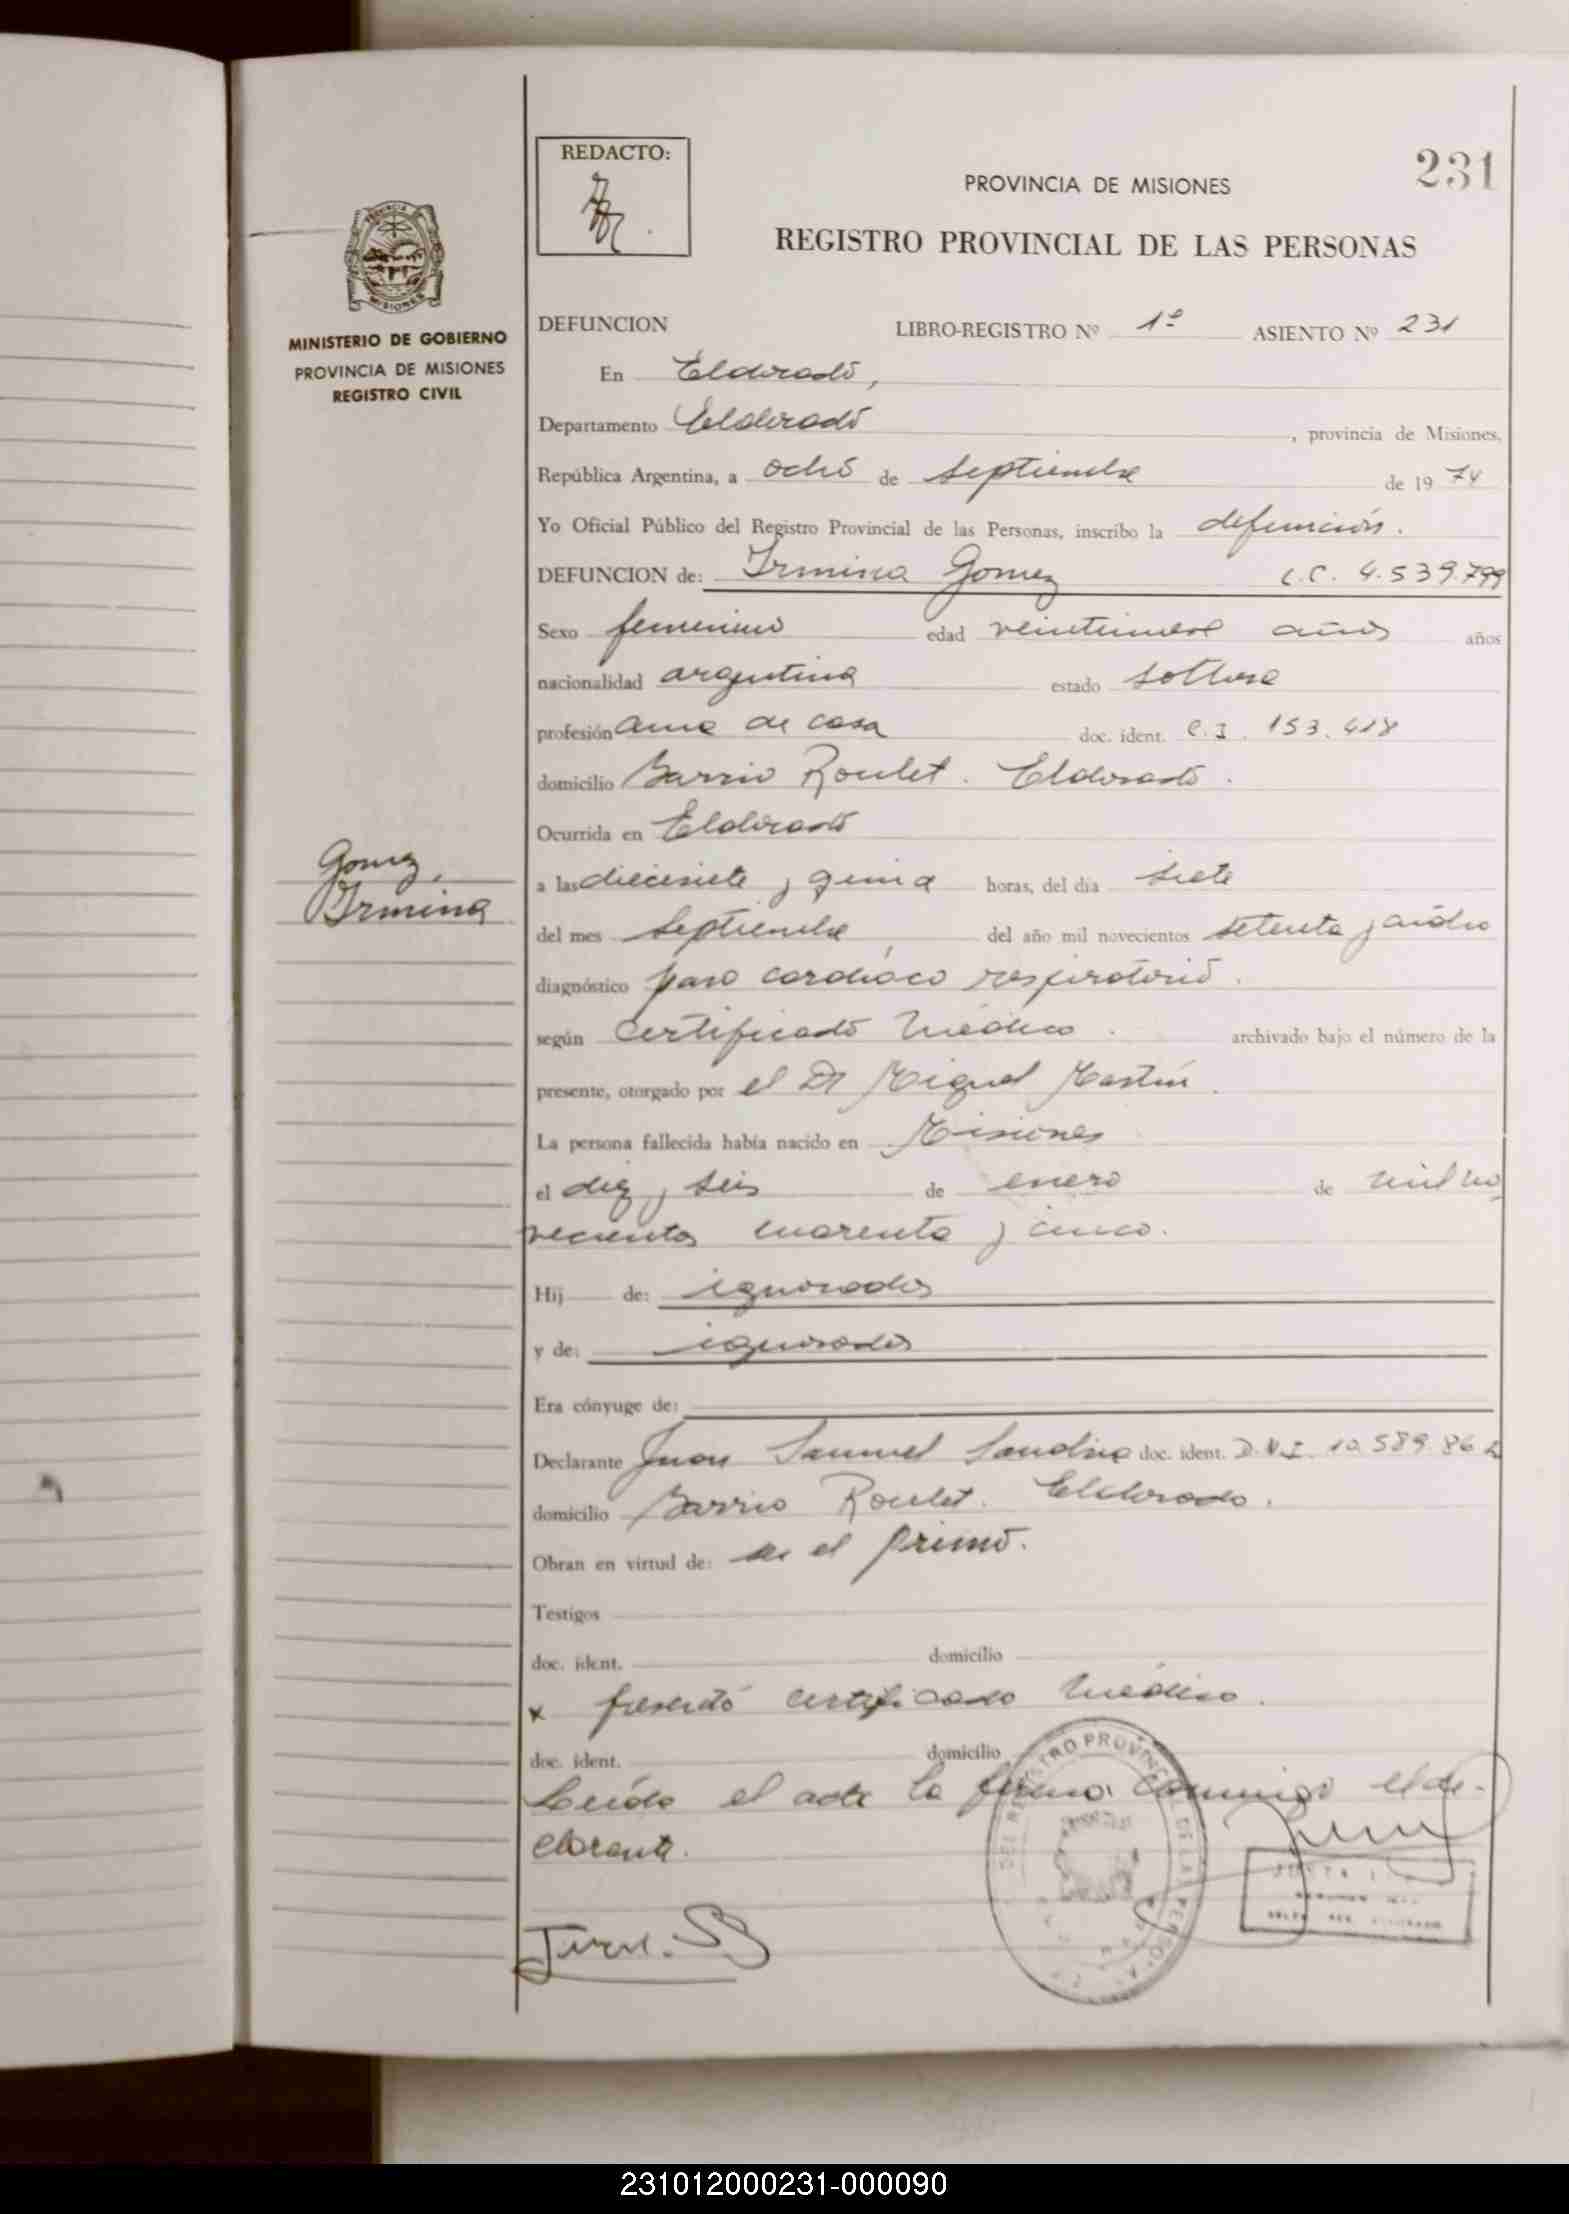 REDACTO:
231
PROVINCIA DE MISIONES
REGISTRO PROVINCIAL DE LAS PERSONAS
PROVINCIA
MISIONES
MINISTERIO DE GOBIERNO
PROVINCIA DE MISIONES
REGISTRO CIVIL
DEFUNCION LIBRO-REGISTRO Nº 1º ASIENTO Nº 231
En Eldorado,
Departamento Eldorado, provincia de Misiones,
República Argentina, a ocho de septiembre de 1974
Yo Oficial Público del Registro Provincial de las Personas, inscribo la defunción.
DEFUNCION de: Irmina Gomez L.C. 4.539.799
Sexo femenino edad veintinueve años años
nacionalidad argentina estado soltera
profesión ama de casa doc. ident. C.I. 153.418
domicilio Barrio Roulet. Eldorado.
Ocurrida en Eldorado
Gomez,
Irmina
a las diecisiete y quince horas, del día siete
del mes septiembre del año mil novecientos setenta y cuatro
diagnóstico paro cardíaco respiratorio.
según certificado médico. archivado bajo el número de la
presente, otorgado por el Dr Miguel Martín.
La persona fallecida había nacido en Misiones
el diez y seis de enero de mil no
vecientos cuarenta y cinco.
Hij de: ignorados
y de: ignorados
Era cónyuge de:
Declarante Juan Samuel doc. ident. D.N.I. 10.589.862
domicilio Barrio Roulet. Eldorado.
Obran en virtud de: ser el primo.
Testigos
doc. ident. domicilio
x presentó certificado médico.
doc. ident. domicilio
Leída el acta la firma conmigo el de-
clarante.
DEL REGISTRO PROVINCIAL DE LAS PERSONAS
231012000231-000090